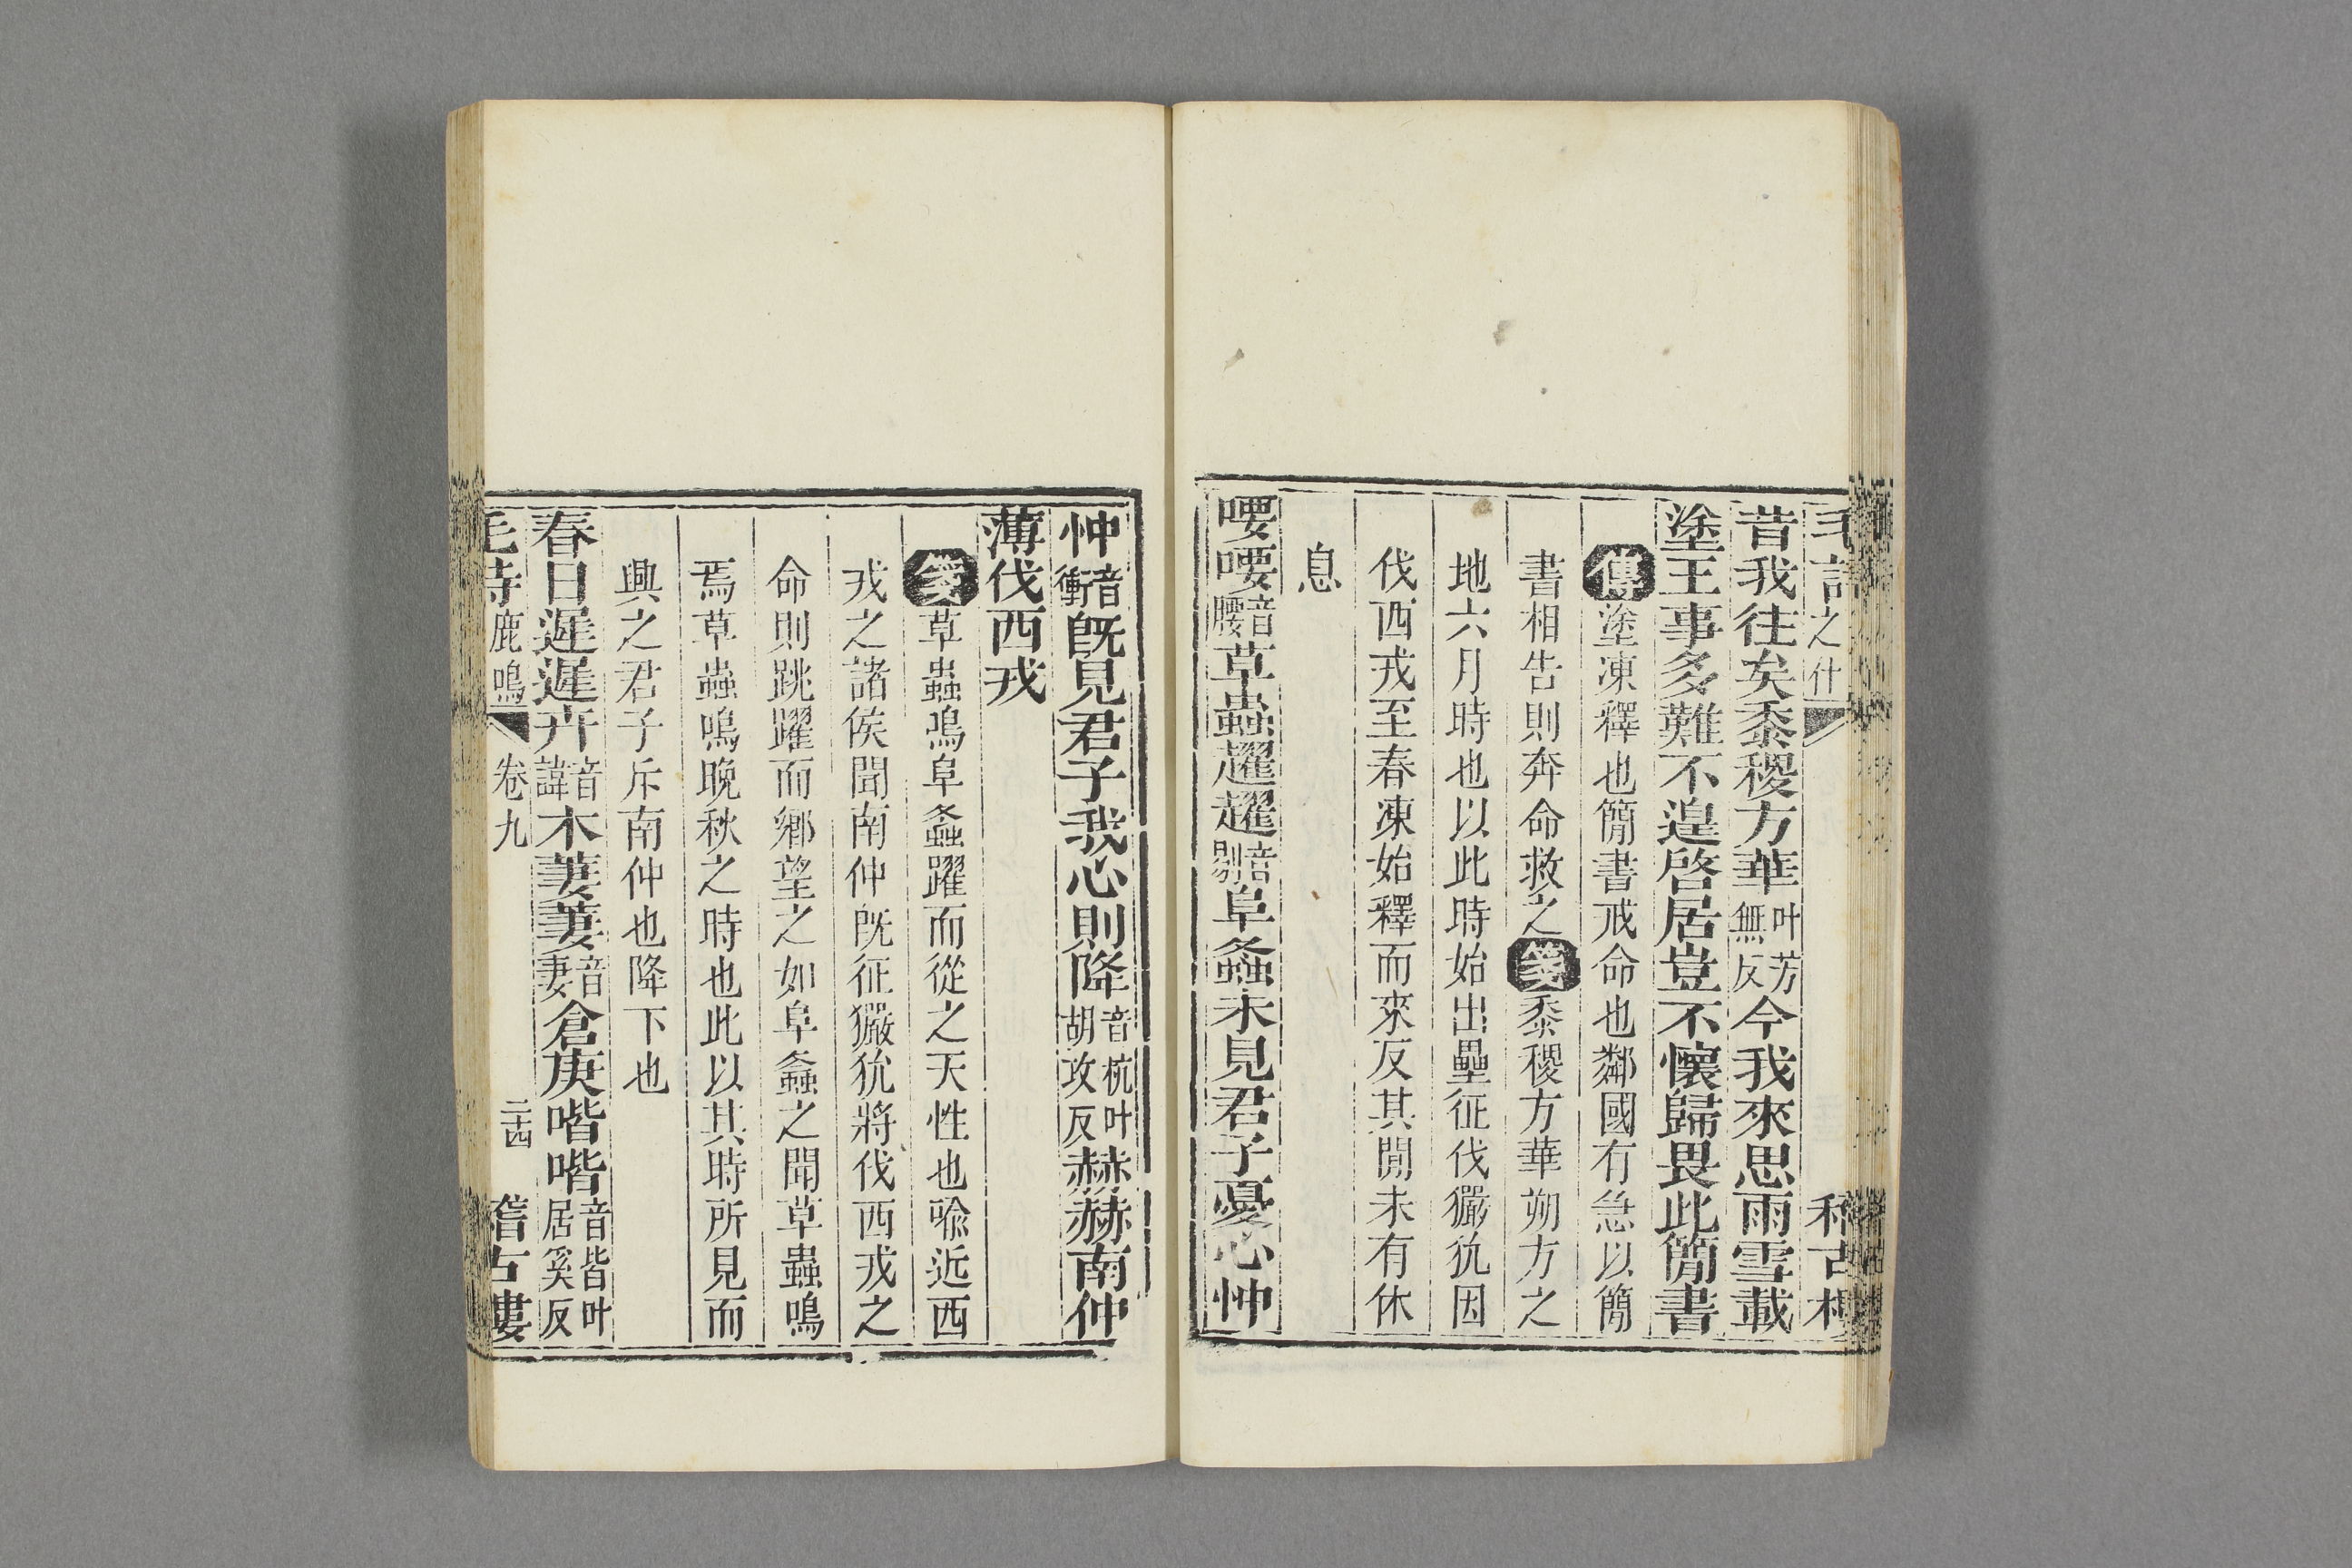 毛詩之什 稽古樓
昔我往矣黍稷方華叶芳無反今我來思雨雪載
塗王事多難不遑啓居豈不懷歸畏此簡書
傳塗凍釋也簡書戒命也鄰國有急以簡
書相告則奔命救之箋黍稷方華朔方之
地六月時也以此時始出壘征伐玁狁因
伐西戎至春凍始釋而來反其閒未有休
息
喓喓音腰草蟲趯趯音剔阜螽未見君子憂心忡
忡音衝旣見君子我心則降音杭叶胡攻反赫赫南仲
薄伐西戎
箋草蟲鳴阜螽躍而從之天性也喩近西
戎之諸侯聞南仲旣征玁狁將伐西戎之
命則跳躍而鄉望之如阜螽之聞草蟲鳴
焉草蟲鳴晚秋之時也此以其時所見而
興之君子斥南仲也降下也
春日遲遲卉音諱木萋萋音妻倉庚喈喈音皆叶居奚反
毛詩鹿鳴 卷九 二十四 稽古樓